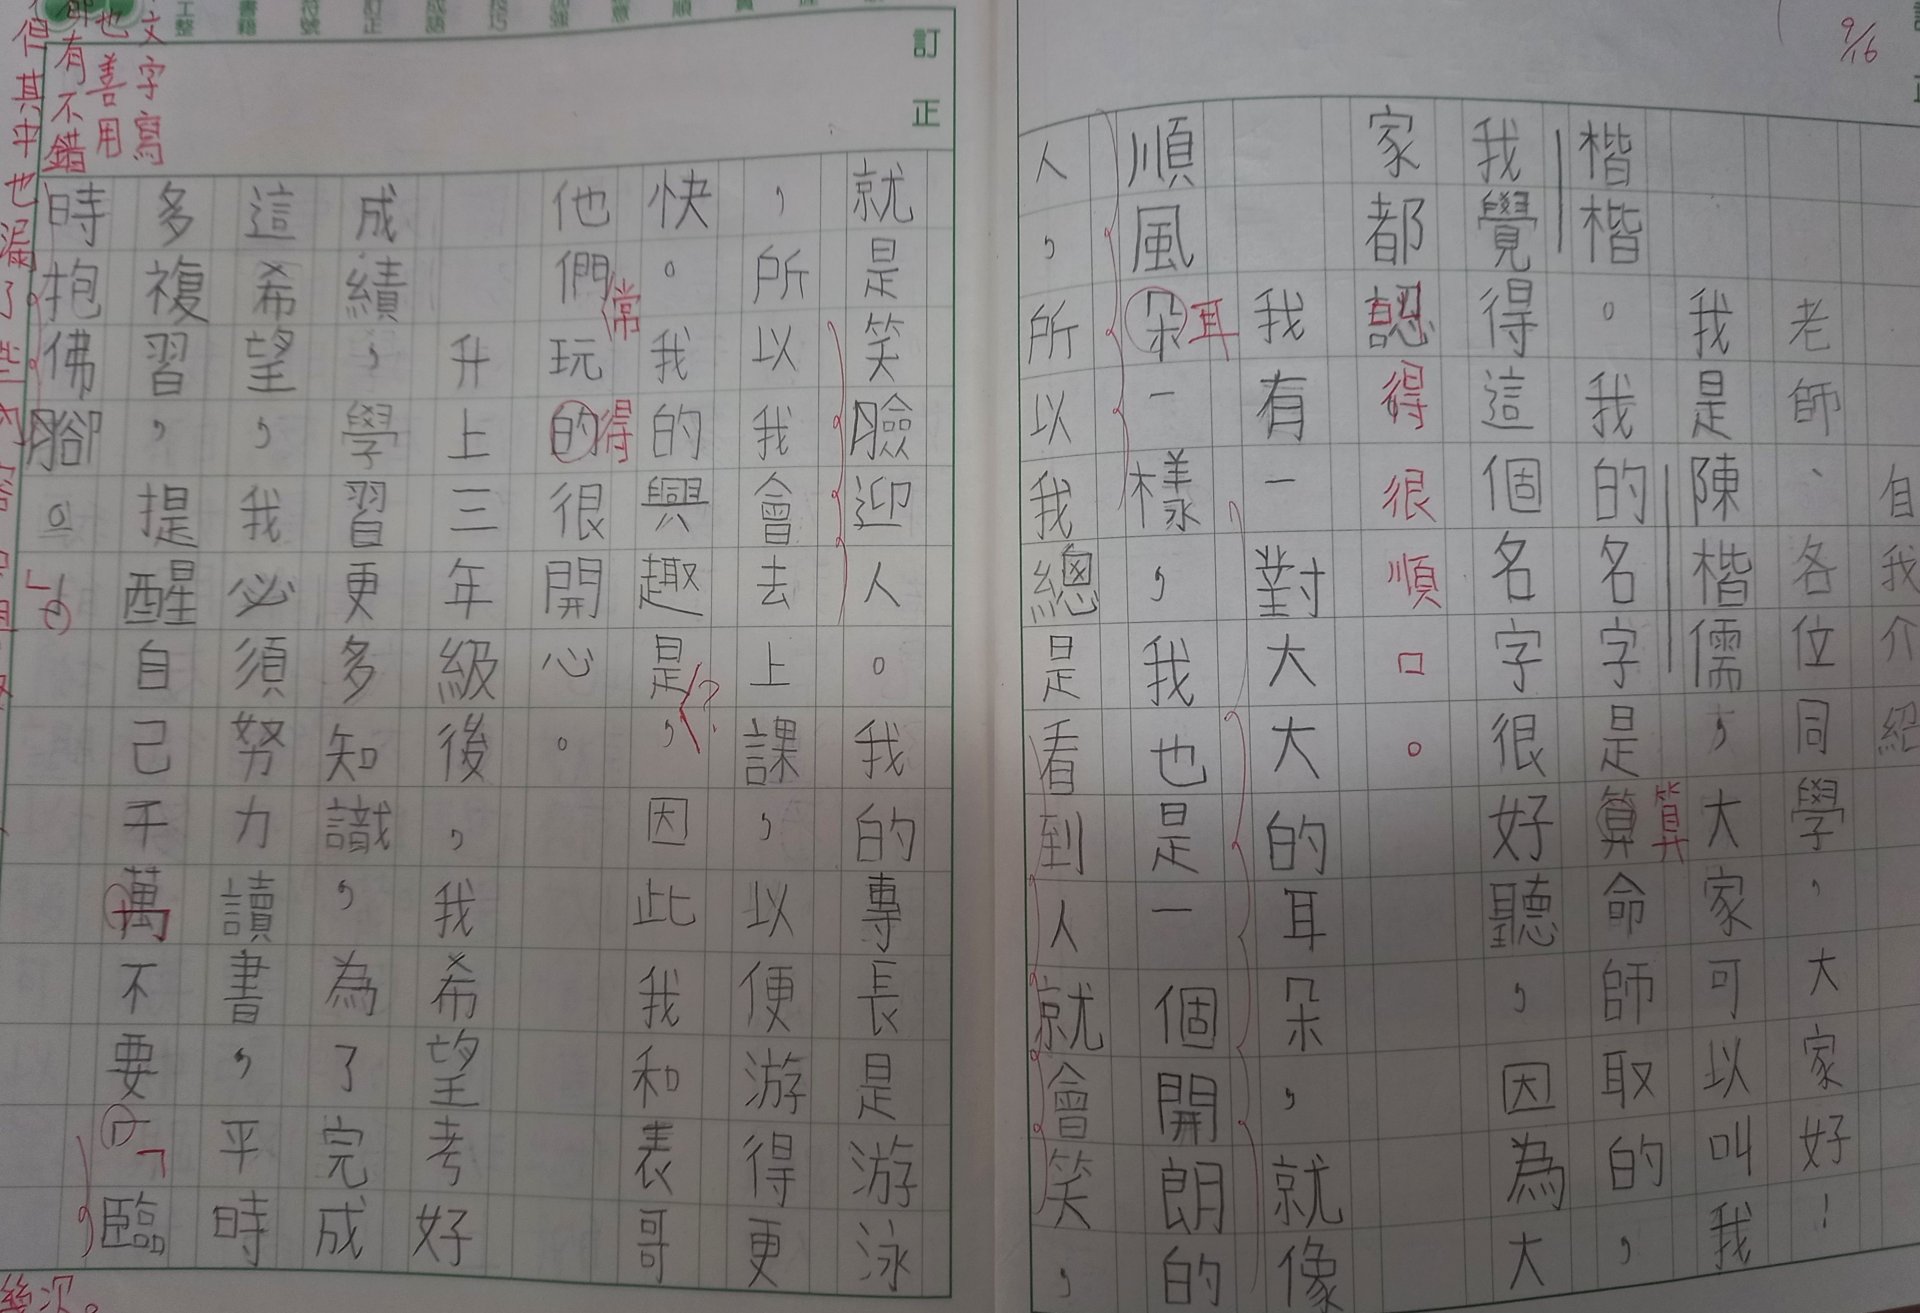 9/16
訂正
自我介紹
老師、各位同學，大家好！
我是陳楷儒，大家可以叫我
算
楷楷。我的名字是算命師取的，
我覺得這個名字很好聽，因為大
家都認得很順口。
我有一對大大的耳朵，就像
耳
順風朵一樣，我也是一個開朗的
人，所以我總是看到人就會笑，
訂正
就是笑臉迎人。我的專長是游泳
，所以我會去上課，以便游得更
?
快。我的興趣是，因此我和表哥
常得
他們玩的很開心。
升上三年級後，我希望考好
成績，學習更多知識，為了完成
這希望，我必須努力讀書，平時
多複習，提醒自己千萬不要「臨
時抱佛腳」。
文字寫
也善用
有不錯
但其中也漏了些內
幾次。